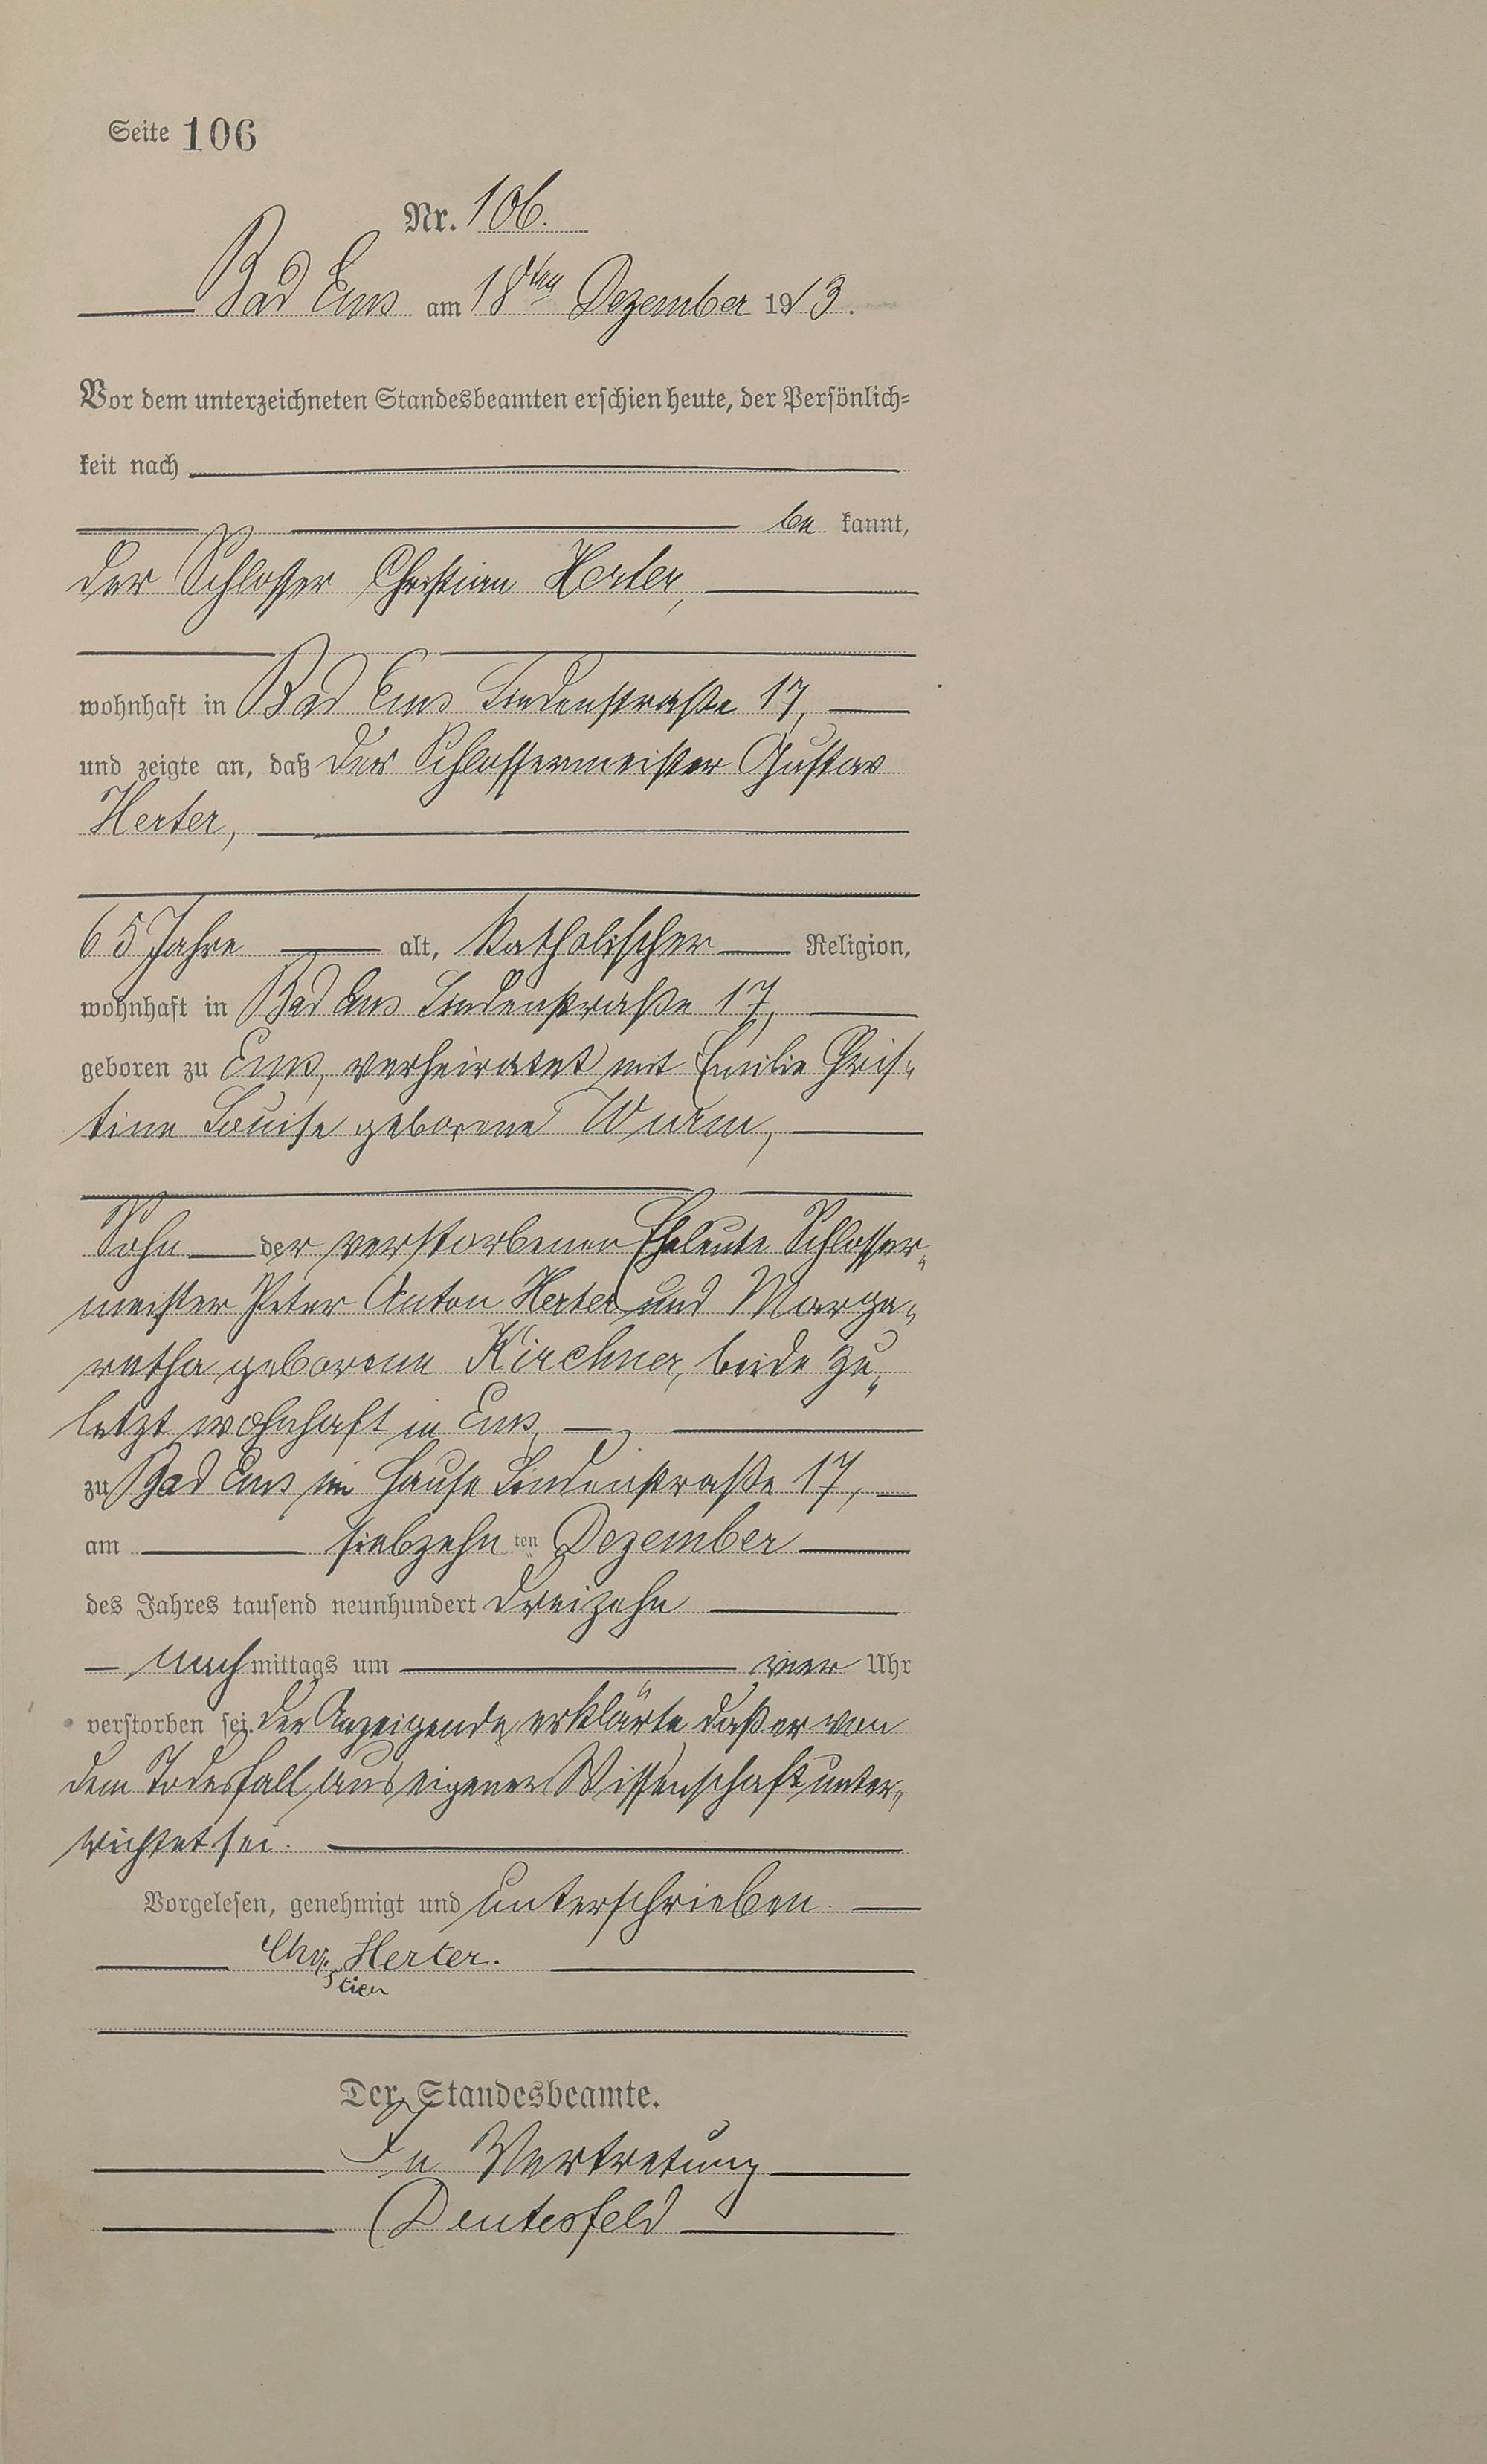 Seite 106
Nr. 106.
Bad Ems am 18ten Dezember 1913.
Vor dem unterzeichneten Standesbeamten erschien heute, der Persönlich=
keit nach
be kannt,
der Schlosser Christian Herter,
wohnhaft in Bad Ems Lindenstraße 17,
und zeigte an, daß der Schlossermeister Gustav
Herter,
65 Jahre alt, katholischer Religion,
wohnhaft in Bad Ems Lindenstraße 17,
geboren zu Ems, verheiratet mit Emilie Chris-
tine Louise geborene Wurm,
Sohn der verstorbenen Eheleute Schlosser-
meister Peter Anton Herter und Marga-
retha geborene Kirchner, beide zu-
letzt wohnhaft in Ems,
zu Bad Ems im Hause Lindenstraße 17,
am siebzehn ten Dezember
des Jahres tausend neunhundert dreizehn
nach mittags um vier Uhr
verstorben sei. Der Anzeigende erklärte, daß er von
dem Todesfall aus eigener Wissenschaft unter-
richtet sei.
Vorgelesen, genehmigt und unterschrieben.
Chri Herter.
stian
Der Standesbeamte.
In Vertretung
Deutesfeld